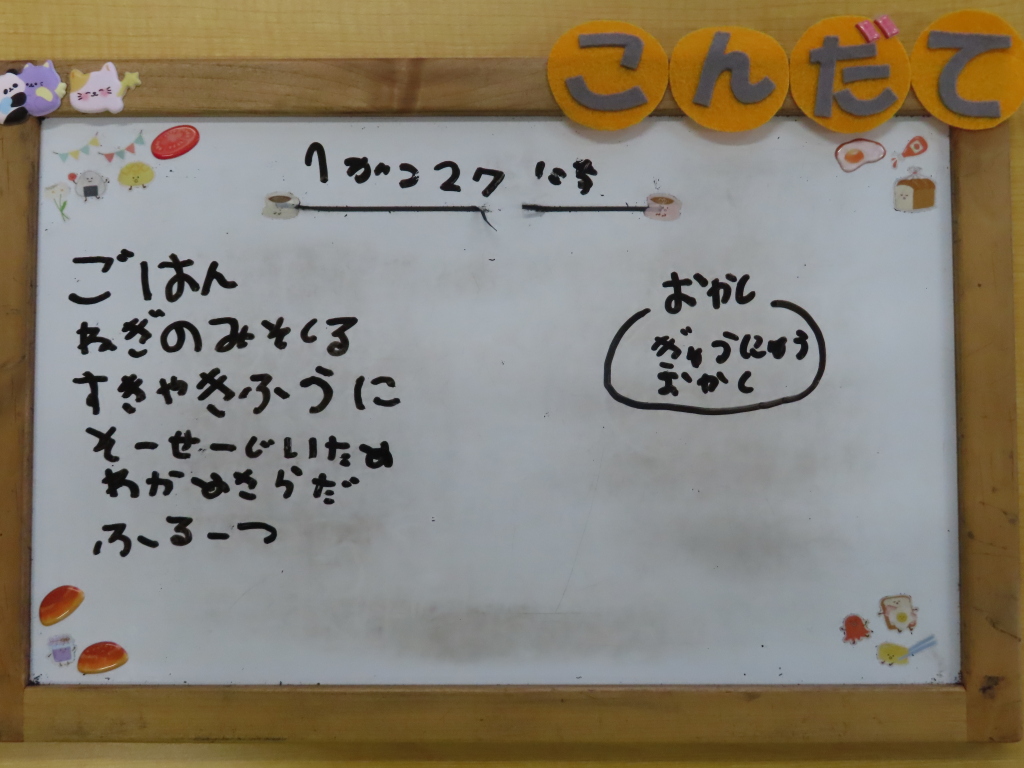 こんだて
1がつ27にち
ごはん
ねぎのみそしる
すきやきふうに
そーせーじいため
わかめさらだ
ふるーつ
おかし
ぎゅうにゅう
おかし